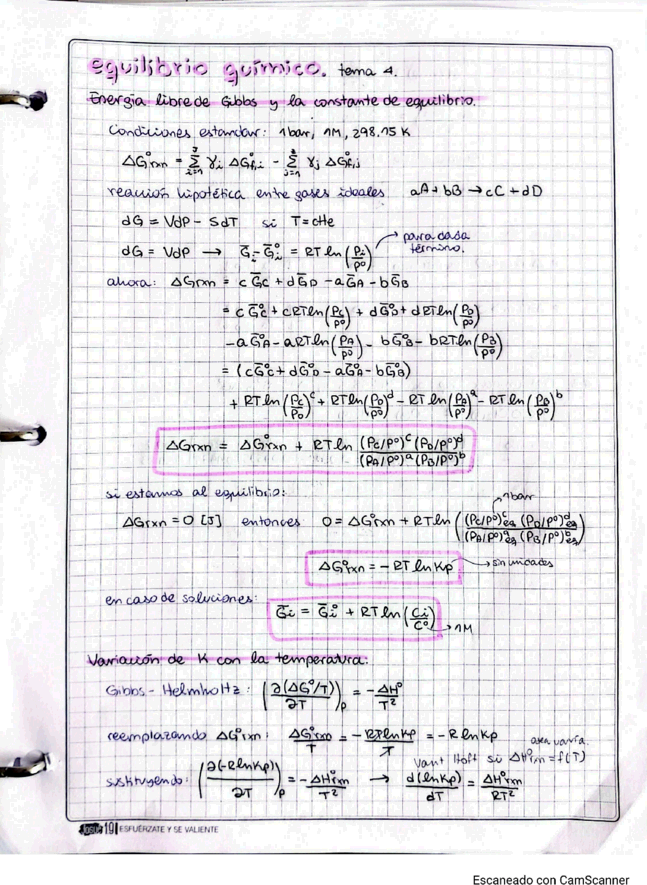 equilibrio químico. tema 4.
Energía libre de Gibbs y la constante de equilibrio.
Condiciones estandar: 1bar, 1M, 298.15 K
ΔG°rxn = Σ(i=1)^J γi ΔG°f,i - Σ(j=1) γj ΔG°f,j
reacción hipotética entre gases ideales aA + bB → cC + dD
dG = VdP - SdT si T = cte
dG = VdP → Ḡi - Ḡi° = RT ln(Pi/P°) para cada término.
ahora: ΔGrxn = c ḠC + dḠD - aḠA - bḠB
= c Ḡ°C + cRTln(PC/P°) + dḠ°D + dRTln(PD/P°)
-aḠ°A - aRTln(PA/P°) - bḠ°B - bRTln(PB/P°)
= (cḠ°C + dḠ°D - aḠ°A - bḠ°B)
+ RT ln(PC/P°)^c + RT ln(PD/P°)^d - RT ln(PA/P°)^a - RT ln(PB/P°)^b
ΔGrxn = ΔG°rxn + RT ln (PC/P°)^c (PD/P°)^d / (PA/P°)^a (PB/P°)^b
si estamos al equilibrio: → 1bar
ΔGrxn = 0 [J] entonces 0 = ΔG°rxn + RT ln((PC/P°)^c eq (PD/P°)^d eq / (PA/P°)^a eq (PB/P°)^b eq)
ΔG°rxn = -RT ln Kp → sin unidades
en caso de soluciones:
Ḡi = Ḡi° + RT ln(Ci/C°) → 1M
Variación de K con la temperatura:
Gibbs - Helmholtz: (∂(ΔG°/T)/∂T)p = -ΔH°/T²
reemplazando ΔG°rxn: ΔG°rxn/T = -RTlnKp/T = -R ln Kp
Vant Hoff si ΔH°rxn = f(T)
sustituyendo: (∂(-RlnKp)/∂T)p = -ΔH°rxn/T² → d(lnKp)/dT = ΔH°rxn/RT²
19 ESFUÉRZATE Y SE VALIENTE
Escaneado con CamScanner